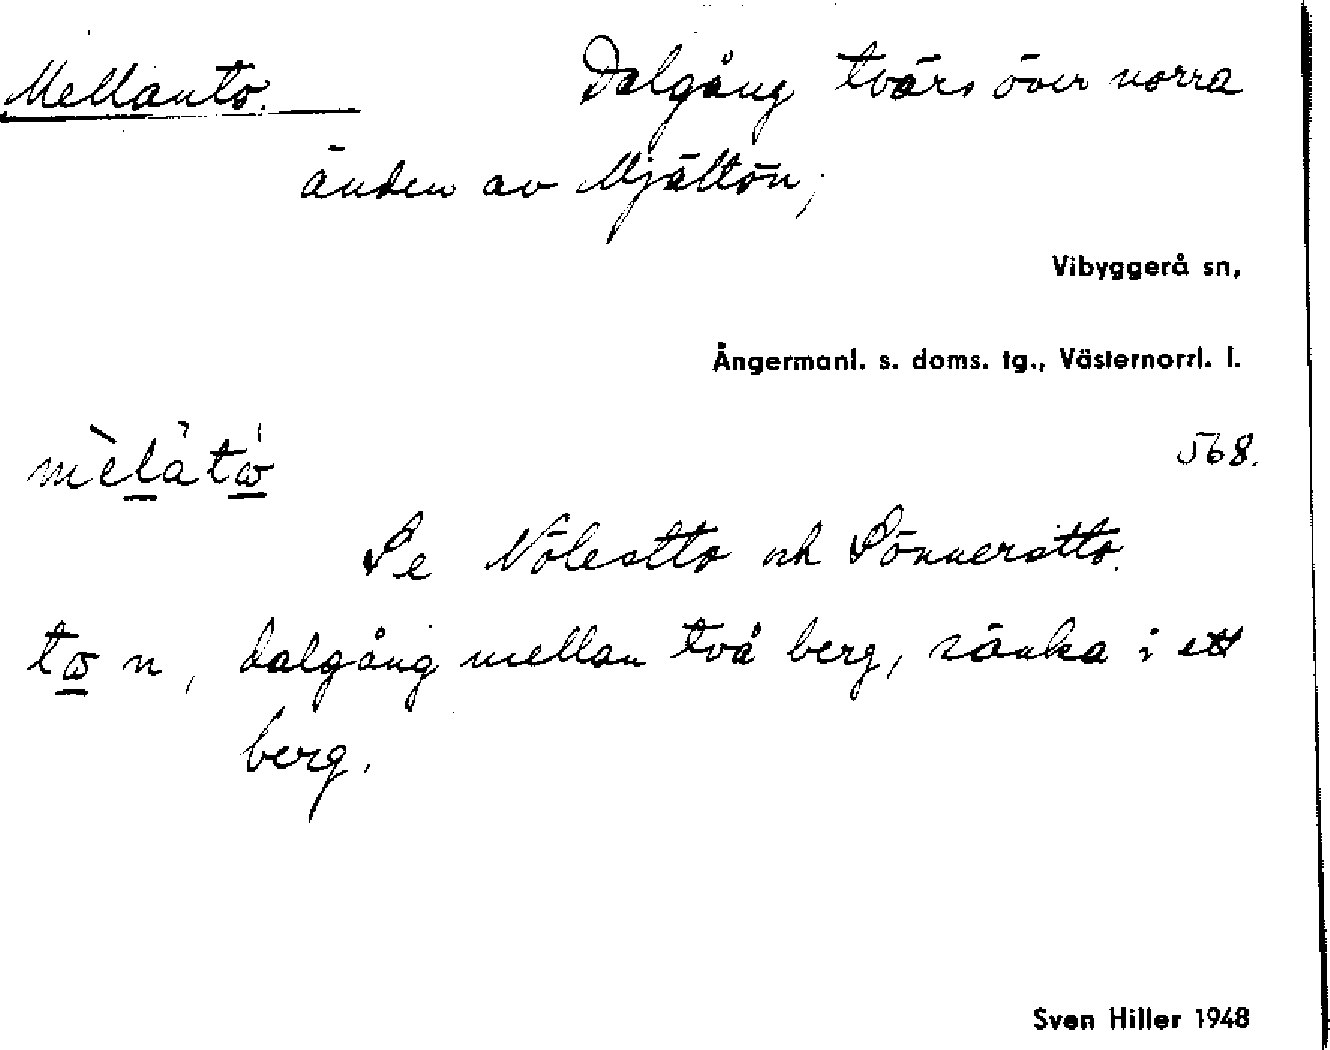 Mellanto. Dalgång tvärs över norra
änden av Mjältön,
Vibyggerå sn,
Ångermanl. s. doms. tg., Västernorrl. l.
mèlàtὼ 568.
Se Nölestto och Sönnerstto.
tω̄ n, dalgång mellan två berg, sänka i ett
berg.
Sven Hiller 1948